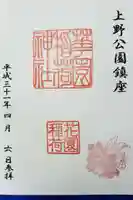 上野公園鎮座
花園稲荷神社
花園稲荷
平成三十一年四月六日参拝